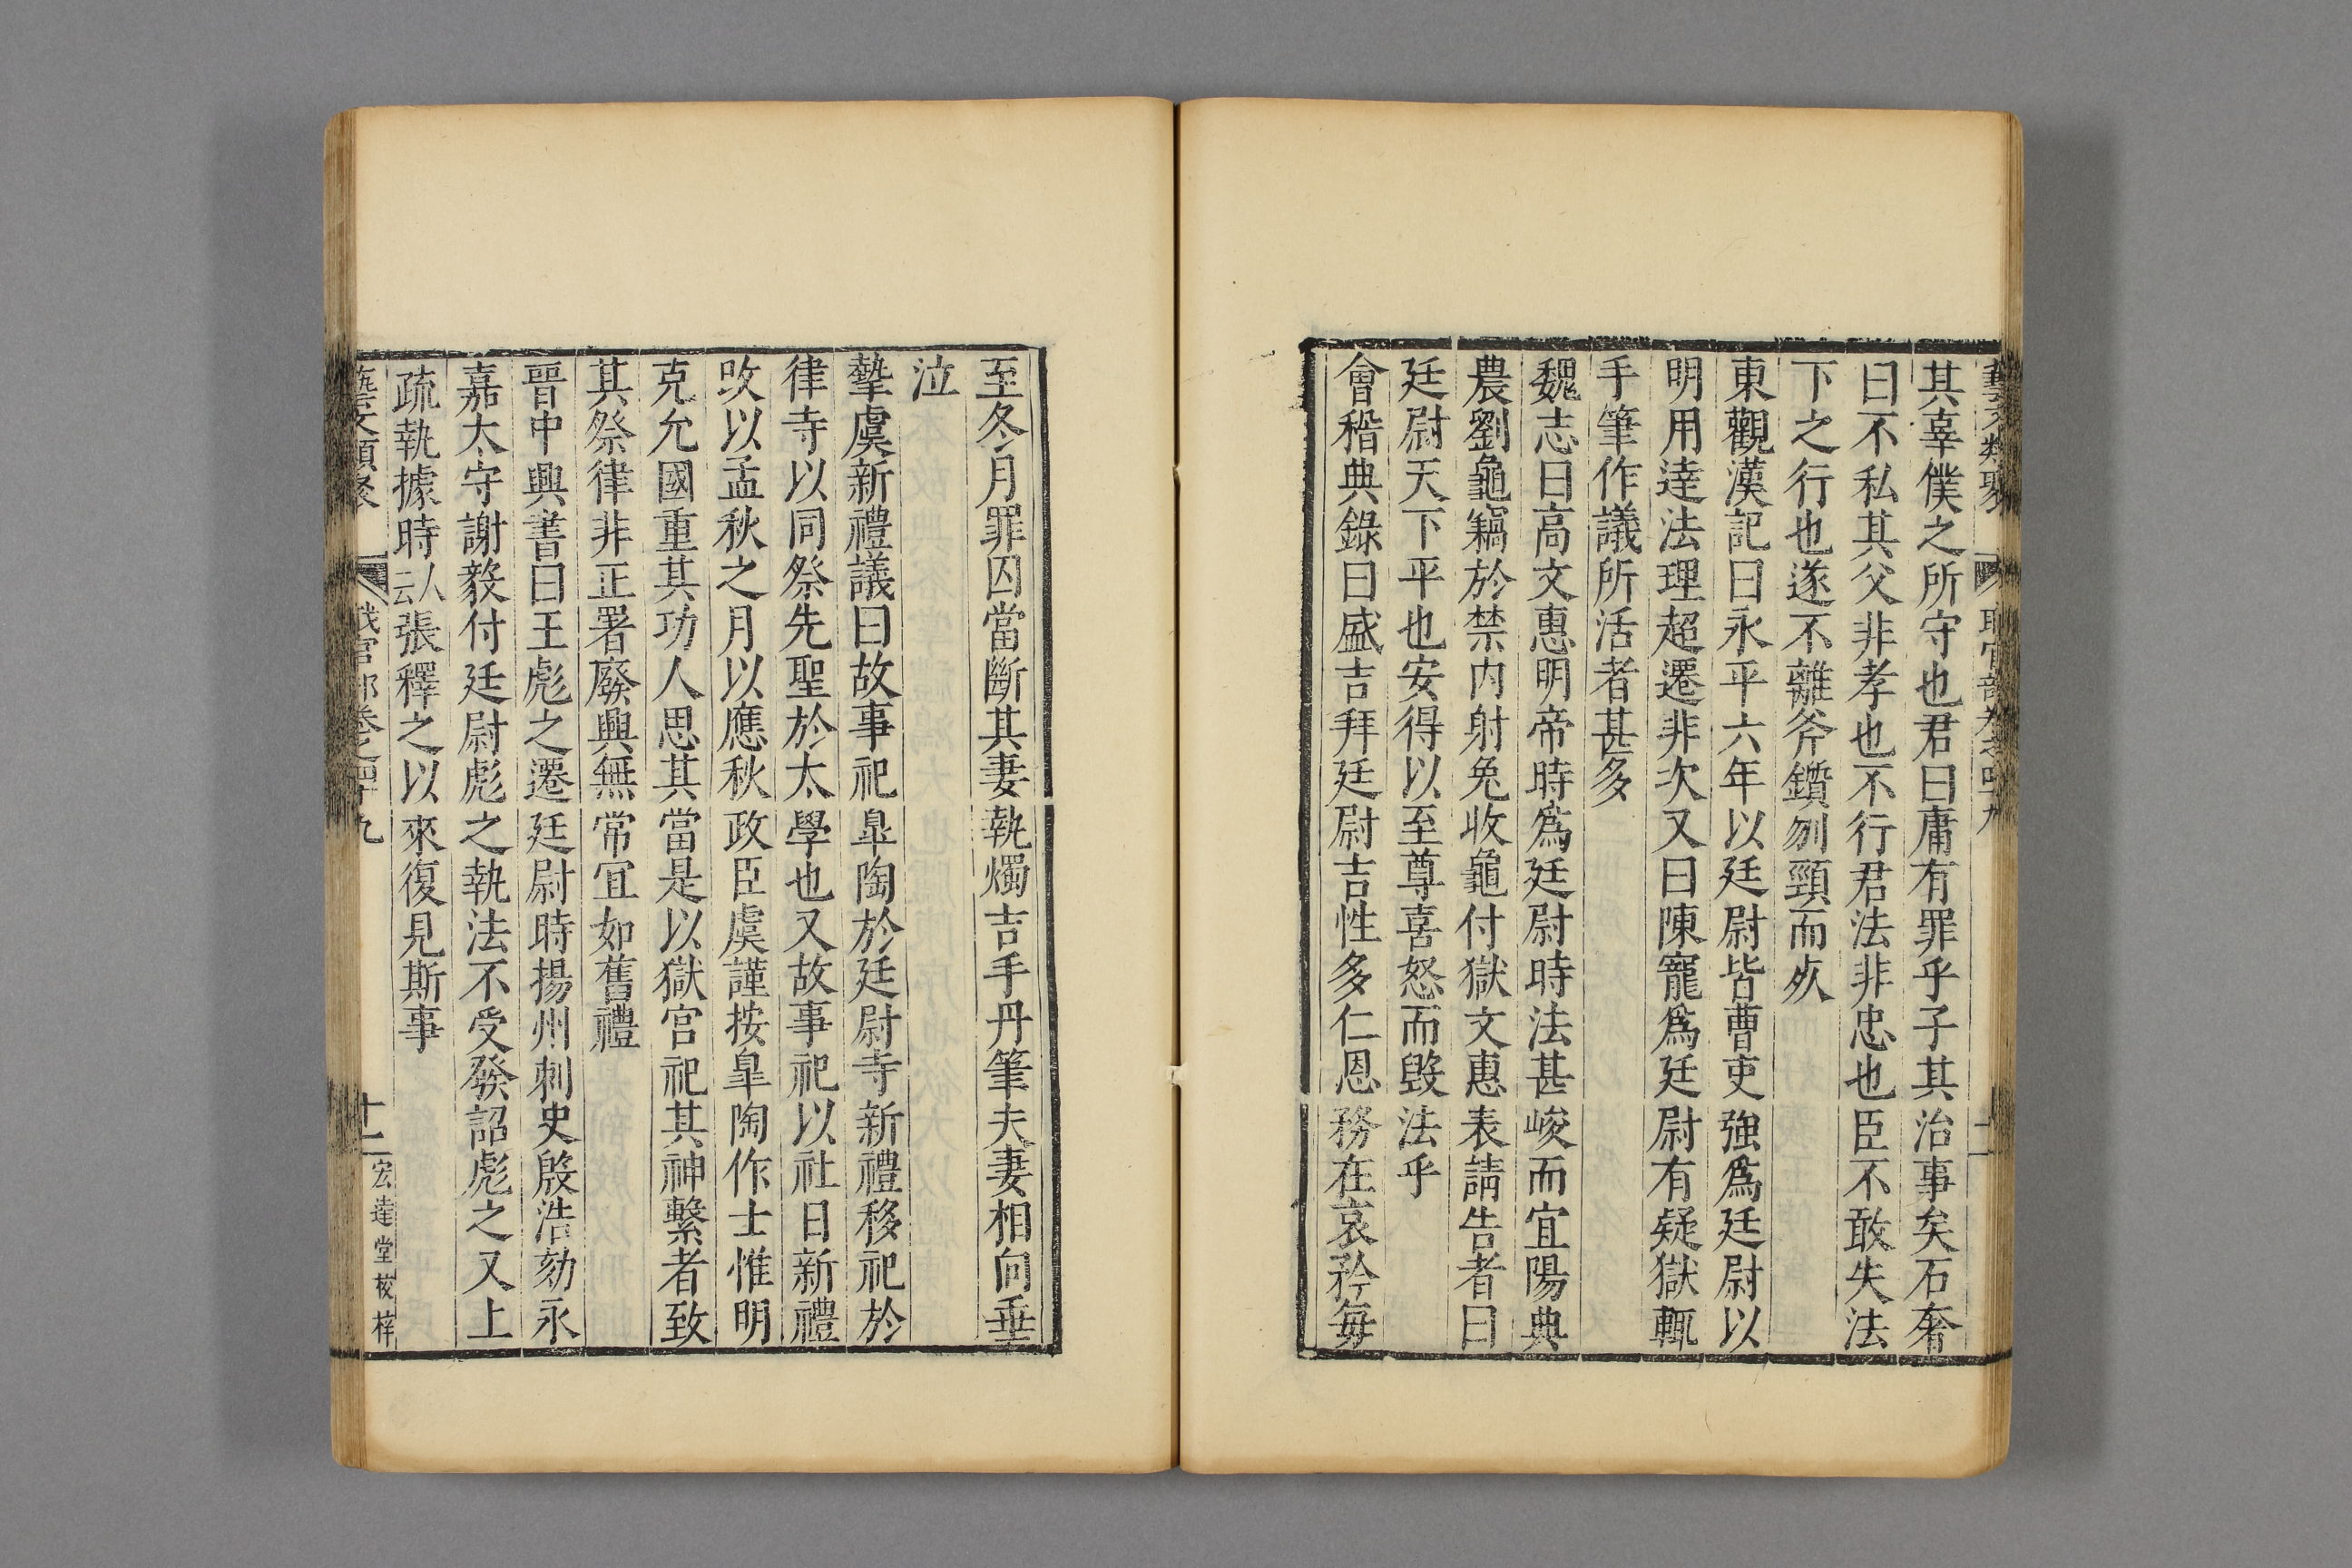 藝文類聚 職官部卷之四十九 十一
其辜僕之所守也君曰庸有罪乎子其治事矣石奢
曰不私其父非孝也不行君法非忠也臣不敢失法
下之行也遂不離斧鑕刎頸而死
東觀漢記曰永平六年以廷尉皆曹吏強爲廷尉以
明用達法理超遷非次又曰陳寵爲廷尉有疑獄輒
手筆作議所活者甚多
魏志曰高文惠明帝時爲廷尉時法甚峻而宜陽典
農劉龜竊於禁内射兔收龜付獄文惠表請告者曰
廷尉天下平也安得以至尊喜怒而毀法乎
會稽典錄曰盛吉拜廷尉吉性多仁恩務在哀矜每
至冬月罪囚當斷其妻執燭吉手丹筆夫妻相向垂
泣
摯虞新禮議曰故事祀臯陶於廷尉寺新禮移祀於
律寺以同祭先聖於太學也又故事祀以社日新禮
攺以孟秋之月以應秋政臣虞謹按臯陶作士惟明
克允國重其功人思其當是以獄官祀其神繫者致
其祭律非正署廢興無常宜如舊禮
晉中興書曰王彪之遷廷尉時揚州刺史殷浩劾永
嘉太守謝毅付廷尉彪之執法不受發詔彪之又上
疏執據時人云張釋之以來復見斯事
藝文類聚 職官部卷之四十九 十二 宏達堂校梓